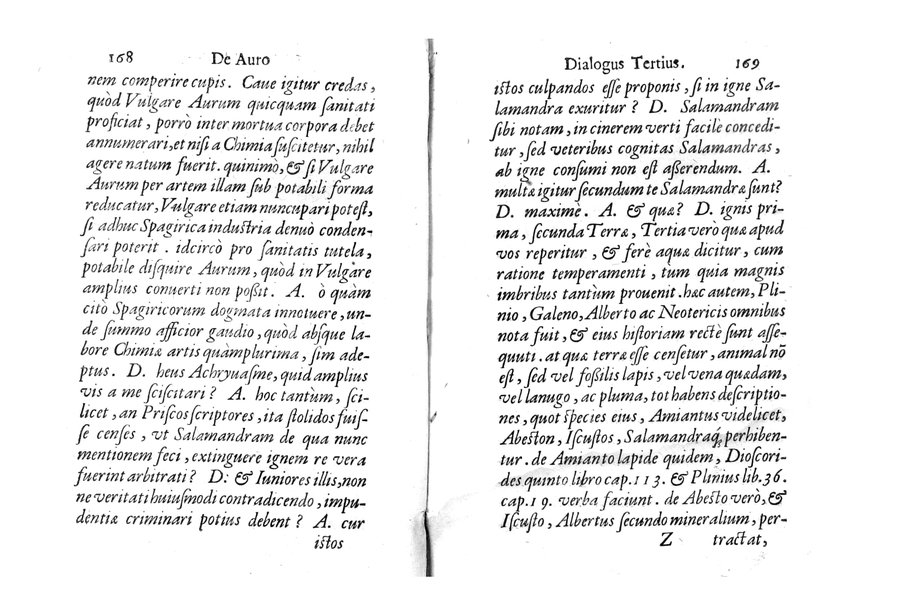 168 De Auro
nem comperire cupis. Caue igitur credas,
quòd Vulgare Aurum quicquam ſanitati
proficiat, porrò inter mortua corpora debet
annumerari, et niſi a Chimia ſuſcitetur, nihil
agere natum fuerit. quinimò, & ſi Vulgare
Aurum per artem illam ſub potabili forma
reducatur, Vulgare etiam nuncupari poteſt,
ſi adhuc Spagirica induſtria denuò conden-
ſari poterit. idcircò pro ſanitatis tutela,
potabile diſquire Aurum, quòd in Vulgare
amplius conuerti non poßit. A. ò quàm
citò Spagiricorum dogmata innotuere, un-
de ſummo afficior gaudio, quòd abſque la-
bore Chimiæ artis quàmplurima, ſim ade-
ptus. D. heus Achryuaſme, quid amplius
vis a me ſciſcitari? A. hoc tantùm, ſci-
licet, an Priſcos ſcriptores, ita ſtolidos fuiſ-
ſe cenſes, vt Salamandram de qua nunc
mentionem feci, extinguere ignem re vera
fuerint arbitrati? D: & Iuniores illis, non
ne veritati huiuſmodi contradicendo, impu-
dentiæ criminari potius debent? A. cur
iſtos
Dialogus Tertius. 169
iſtos culpandos eſſe proponis, ſi in igne Sa-
lamandra exuritur? D. Salamandram
ſibi notam, in cinerem verti facilè concedi-
tur, ſed veteribus cognitas Salamandras,
ab igne conſumi non eſt aßerendum. A.
multæ igitur ſecundum te Salamandræ ſunt?
D. maximè. A. & quæ? D. ignis pri-
ma, ſecunda Terræ, Tertia verò quæ apud
vos reperitur, & ferè aquæ dicitur, cum
ratione temperamenti, tum quia magnis
imbribus tantùm prouenit. hæc autem, Pli-
nio, Galeno, Alberto ac Neotericis omnibus
nota fuit, & eius hiſtoriam rectè ſunt aſſe-
quuti. at quæ terræ eſſe cenſetur, animal nõ
eſt, ſed vel foſſilis lapis, vel vena quædam,
vel lanugo, ac pluma, tot habens deſcriptio-
nes, quot ſpecies eius, Amiantus videlicet,
Abeſton, Iſcuſtos, Salamandraq́, perhiben-
tur. de Amianto lapide quidem, Dioſcori-
des quinto libro cap. 113. & Plinius lib. 36.
cap. 19. verba faciunt. de Abeſto verò, &
Iſcuſto, Albertus ſecundo mineralium, per-
Z tractat,